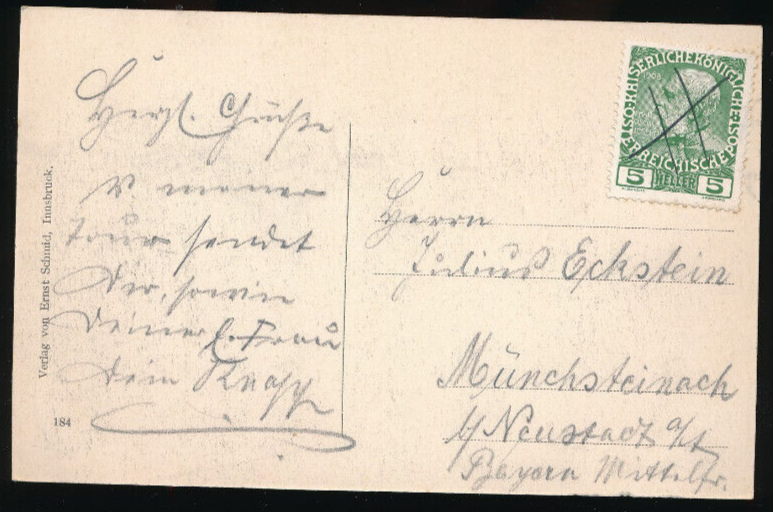 Herzl. Grüße
v. meiner
Tour sendet
Dir, sowie
Deiner l. Frau
Dein Knapp
Verlag von Ernst Schmid, Innsbruck.
184
KAISERLICHEKÖNIGLICHE ÖSTERREICHISCHE POST
1908
5 HELLER 5
Herrn
Julius Eckstein
Münchsteinach
b/ Neustadt a/A
Bayern Mittelfr.